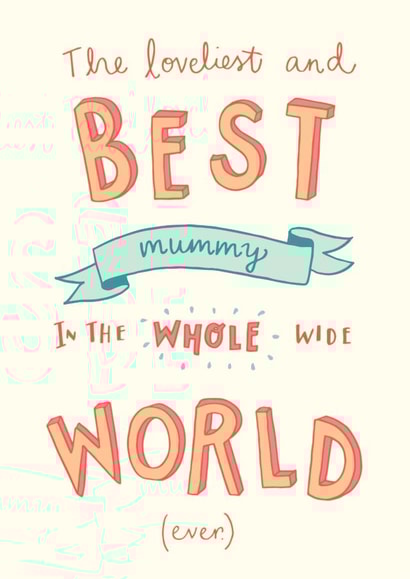 The loveliest and
BEST
mummy
IN THE WHOLE WIDE
WORLD
(ever.)